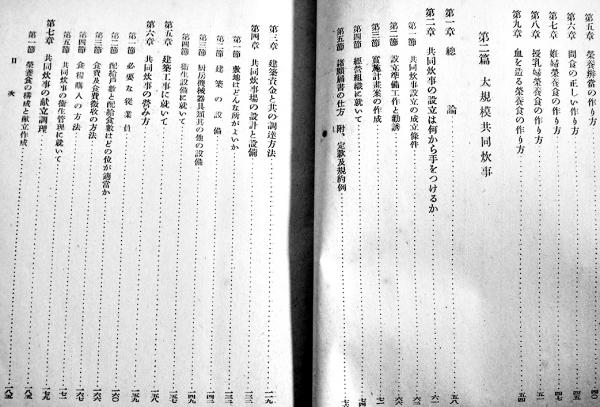 第五章 榮養辨當の作り方
第六章 間食の正しい作り方
第七章 姙婦榮養食の作り方
第八章 授乳婦榮養食の作り方
第九章 血を造る榮養食の作り方
第二篇 大規模共同炊事
第一章 總論
第二章 共同炊事の設立は何から手をつけるか
第一節 共同炊事設立の成立條件
第二節 設立準備工作と勸誘
第三節 實施計畫案の作成
第四節 經營組織に就いて
第五節 諸願屆書の仕方 附、定款及規約例
第三章 建築資金と其の調達方法
第四章 共同炊事場の設計と設備
第一節 敷地はどんな所がよいか
第二節 建築の設備
第三節 厨房機械器具類其の他の設備
第四節 衞生設備に就いて
第五章 建築工事に就いて
第六章 共同炊事の營み方
第一節 必要な從業員
第二節 配給戸數と配給食數はどの位が適當か
第三節 食費及食費徴收の方法
第四節 食糧購入の方法
第五節 共同炊事の衞生管理に就いて
第七章 共同炊事の獻立調理
第一節 榮養食の構成と獻立作成
目次